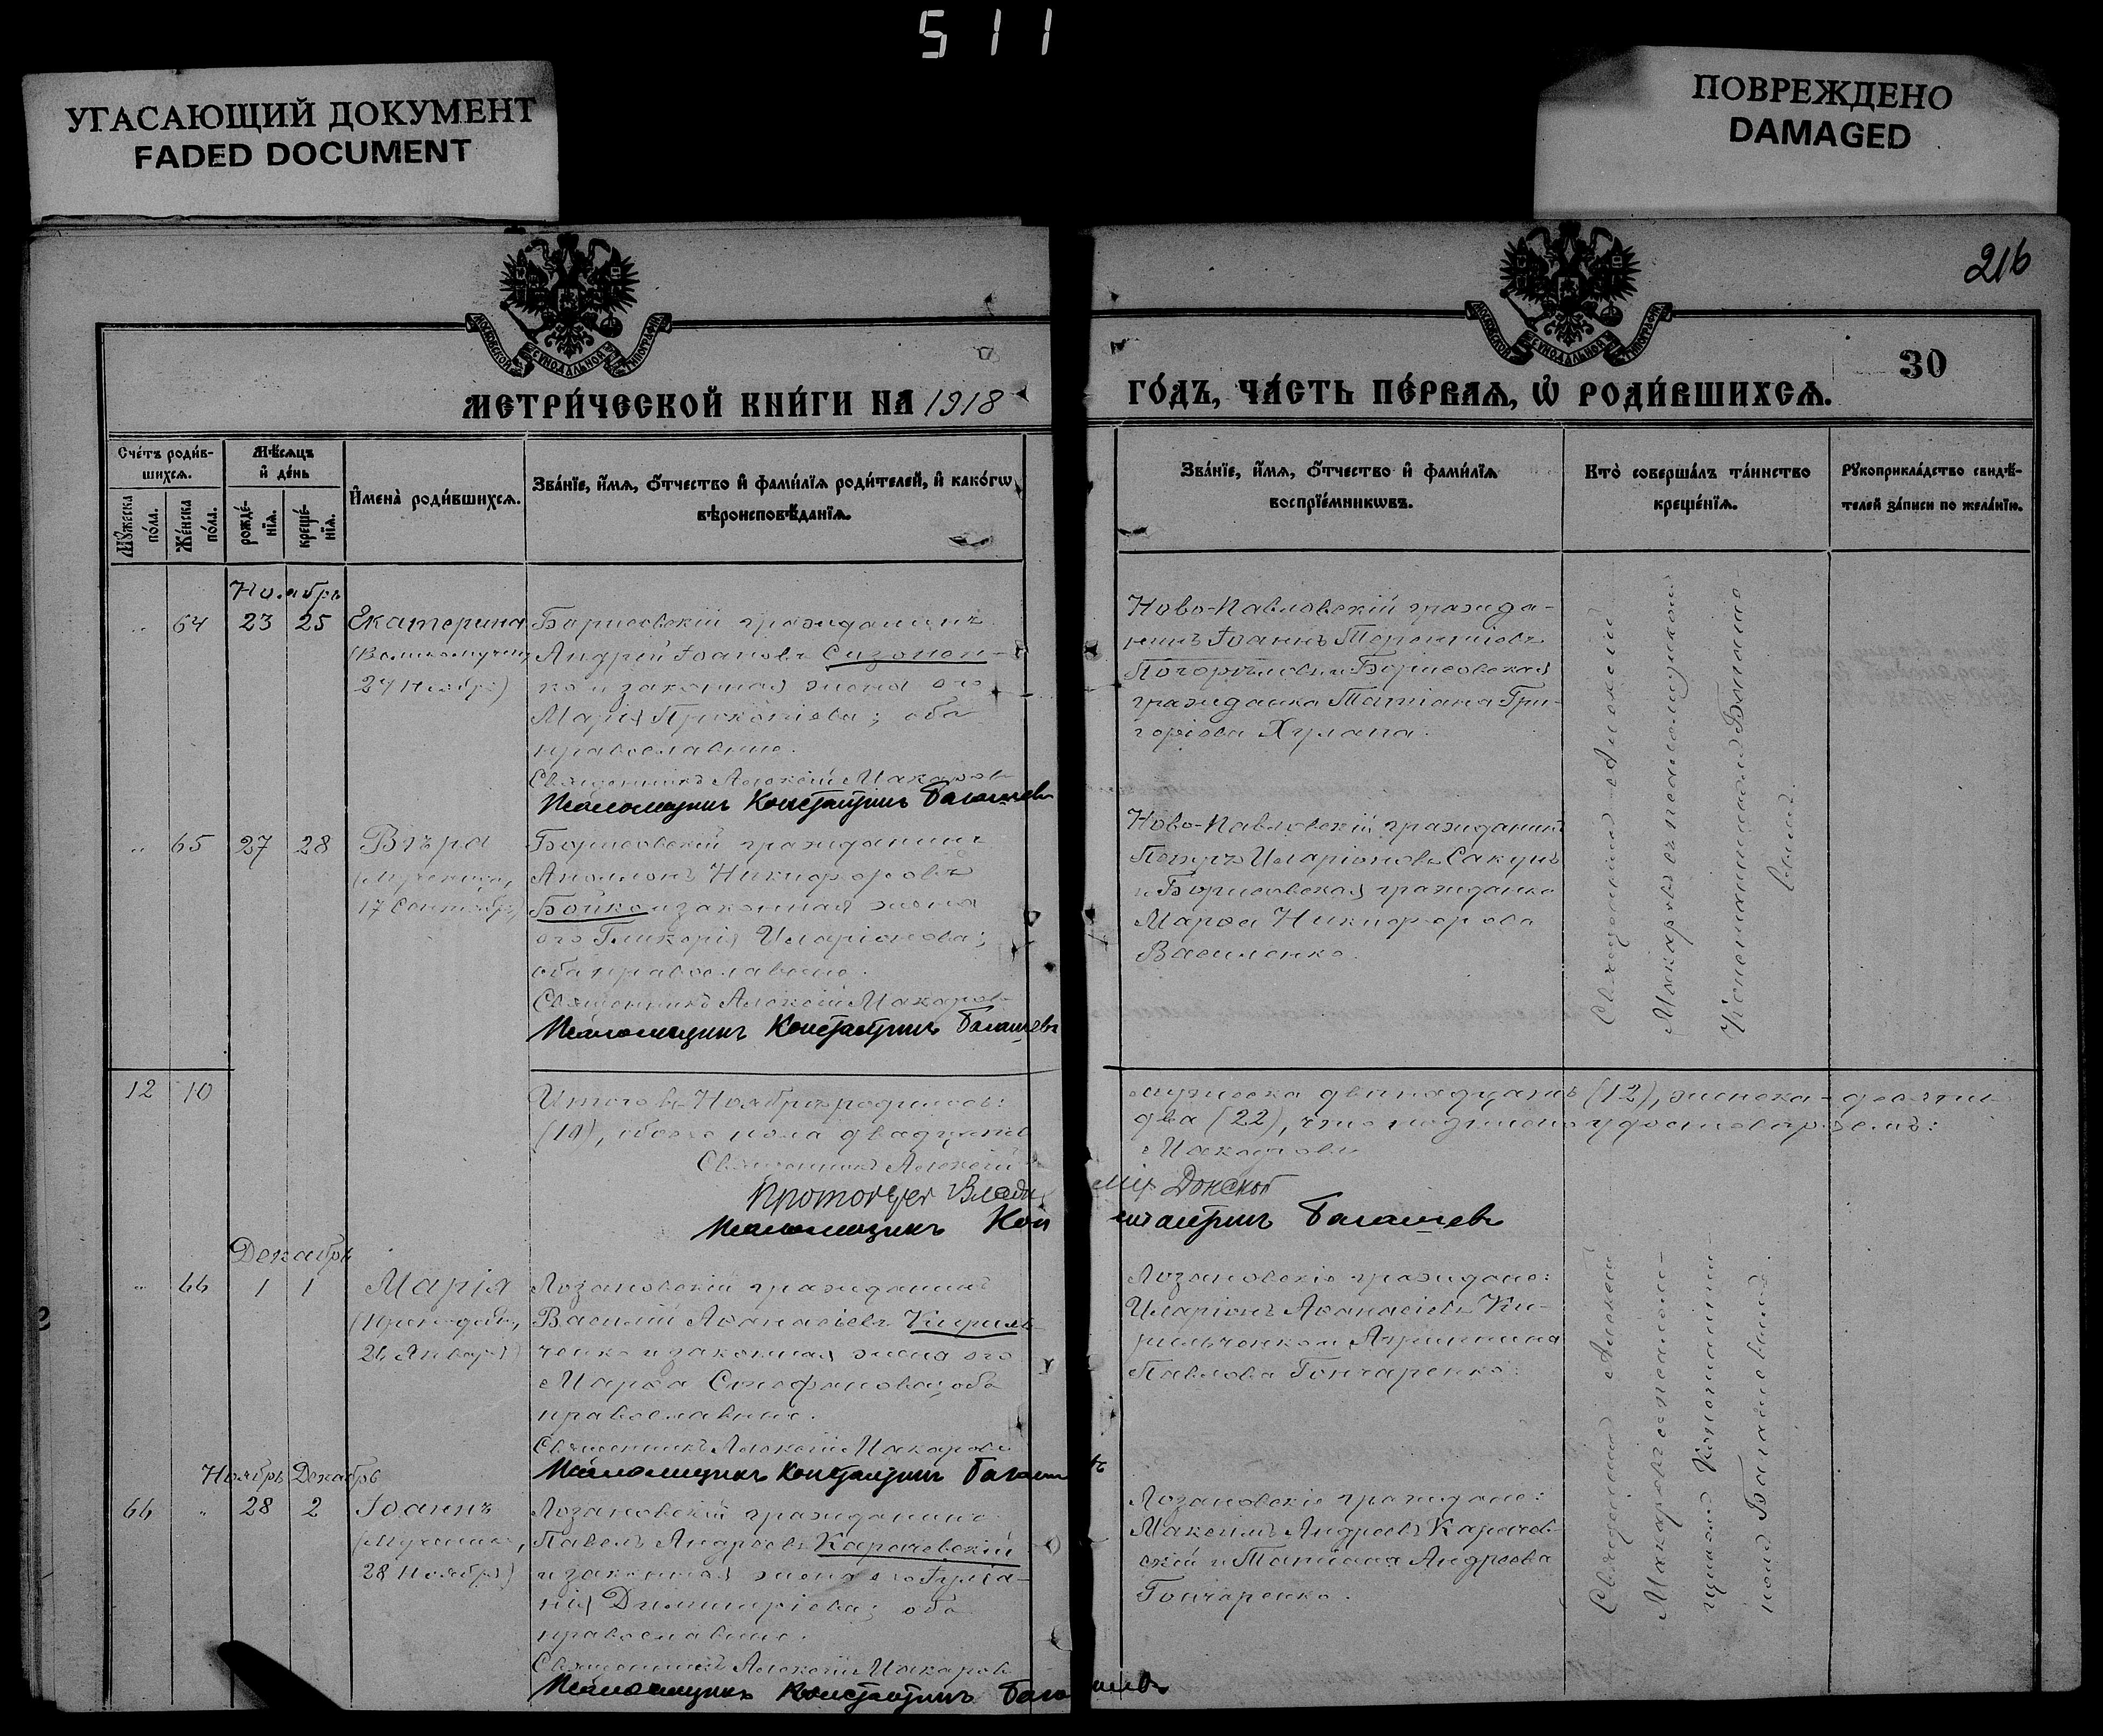 511
УГАСАЮЩИЙ ДОКУМЕНТ
FADED DOCUMENT
ПОВРЕЖДЕНО
DAMAGED
216
МОСКОВСКОЙ СѴНОДАЛЬНОЙ ТИПОГРАФІИ
МОСКОВСКОЙ СѴНОДАЛЬНОЙ ТИПОГРАФІИ
30
МЕТРИ́ЧЕСКОЙ КНИ́ГИ НА 1918
ГО́ДЪ, ЧА́СТЬ ПЕ́РВАѦ, Ѡ҆ РОДИ́ВШИХСѦ.
Сче́тъ роди́в-
шихсѧ.
Мѣ́сѧцъ
и҆ де́нь
Мꙋ́жеска
по́ла.
Же́нска
по́ла.
рожде́-
нїѧ.
креще́-
нїѧ.
И҆мена̀ роди́вшихсѧ.
Зва́нїе, и҆́мѧ, ѻ҆́тчество и҆ фами́лїѧ роди́телей, и҆ како́гѡ
вѣроисповѣ́данїѧ.
Зва́нїе, и҆́мѧ, ѻ҆́тчество и҆ фами́лїѧ
воспрїе́мникѡвъ.
Кто̀ соверша́лъ та́инство
креще́нїѧ.
Рꙋкоприкла́дство свидѣ́-
телей за́писи по жела́нїю.
Ноябрь
64 23 25 Екатерина
(Великомучен,
24 Ноября)
Борисовскій гражданинъ
Андрей Іоановъ Сизонен-
ко и законная жена его
Марія Прокопіева; оба
православные.
Священникъ Алексій Макаровъ
Псаломщикъ Константинъ Балашевъ
Ново-Павловскій гражда-
нинъ Іоаннъ Терентіевъ
и Борисовская
гражданка Татіана Гри-
горіева Хулапа.
Священникъ Алексій
Макаровъ съ псаломщикомъ
Константиномъ Балаше-
вымъ.
65 27 28 Вѣра
(Мученица,
17 Сентября)
Борисовскій гражданинъ
Аполлонъ Никифоровъ
Бойко и законная жена
его Гликерія Иларіонова;
оба православные.
Священникъ Алексій Макаровъ
Псаломщикъ Константинъ Балашевъ
Ново-Павловскій гражданинъ
Петръ Иларіоновъ Сакунъ
и Борисовская гражданка
Марѳа Никифорова
Василенко.
12 10
Итого въ Ноябрѣ родилось:
мужеска двенадцать (12), женска - десять
(10), обоего пола двадцать
два (22), что подписью удостовѣряемъ:
Священникъ Алексій
Макаровъ
Протоіерей Владиміръ Донской
Псаломщикъ Константинъ Балашевъ
Декабрь
66 1 1 Марія
(Преподобн,
26 Января)
Лозановскій гражданинъ
Василій Аѳанасіевъ Кириль-
ченко и законная жена его
Марѳа Стефанова; оба
православные.
Священникъ Алексій Макаровъ
Псаломщикъ Константинъ Балашевъ
Лозановскіе граждане:
Иларіонъ Аѳанасіевъ Ки-
рильченко и Агриппина
Павлова Гончаренко.
Священникъ Алексій
Макаровъ съ псалом-
щикомъ Константи-
номъ Балашевымъ.
Ноябрь Декабрь
66 28 2 Іоаннъ
(Мученикъ,
28 Ноября)
Лозановскій гражданинъ
Павелъ Андреевъ Карачевскій
и законная жена его Іуліа-
нія Димитріева; оба
православные.
Священникъ Алексій Макаровъ
Псаломщикъ Константинъ Балашевъ
Лозановскіе граждане:
Максимъ Андреевъ Карачев-
скій и Татіана Андреева
Гончаренко.